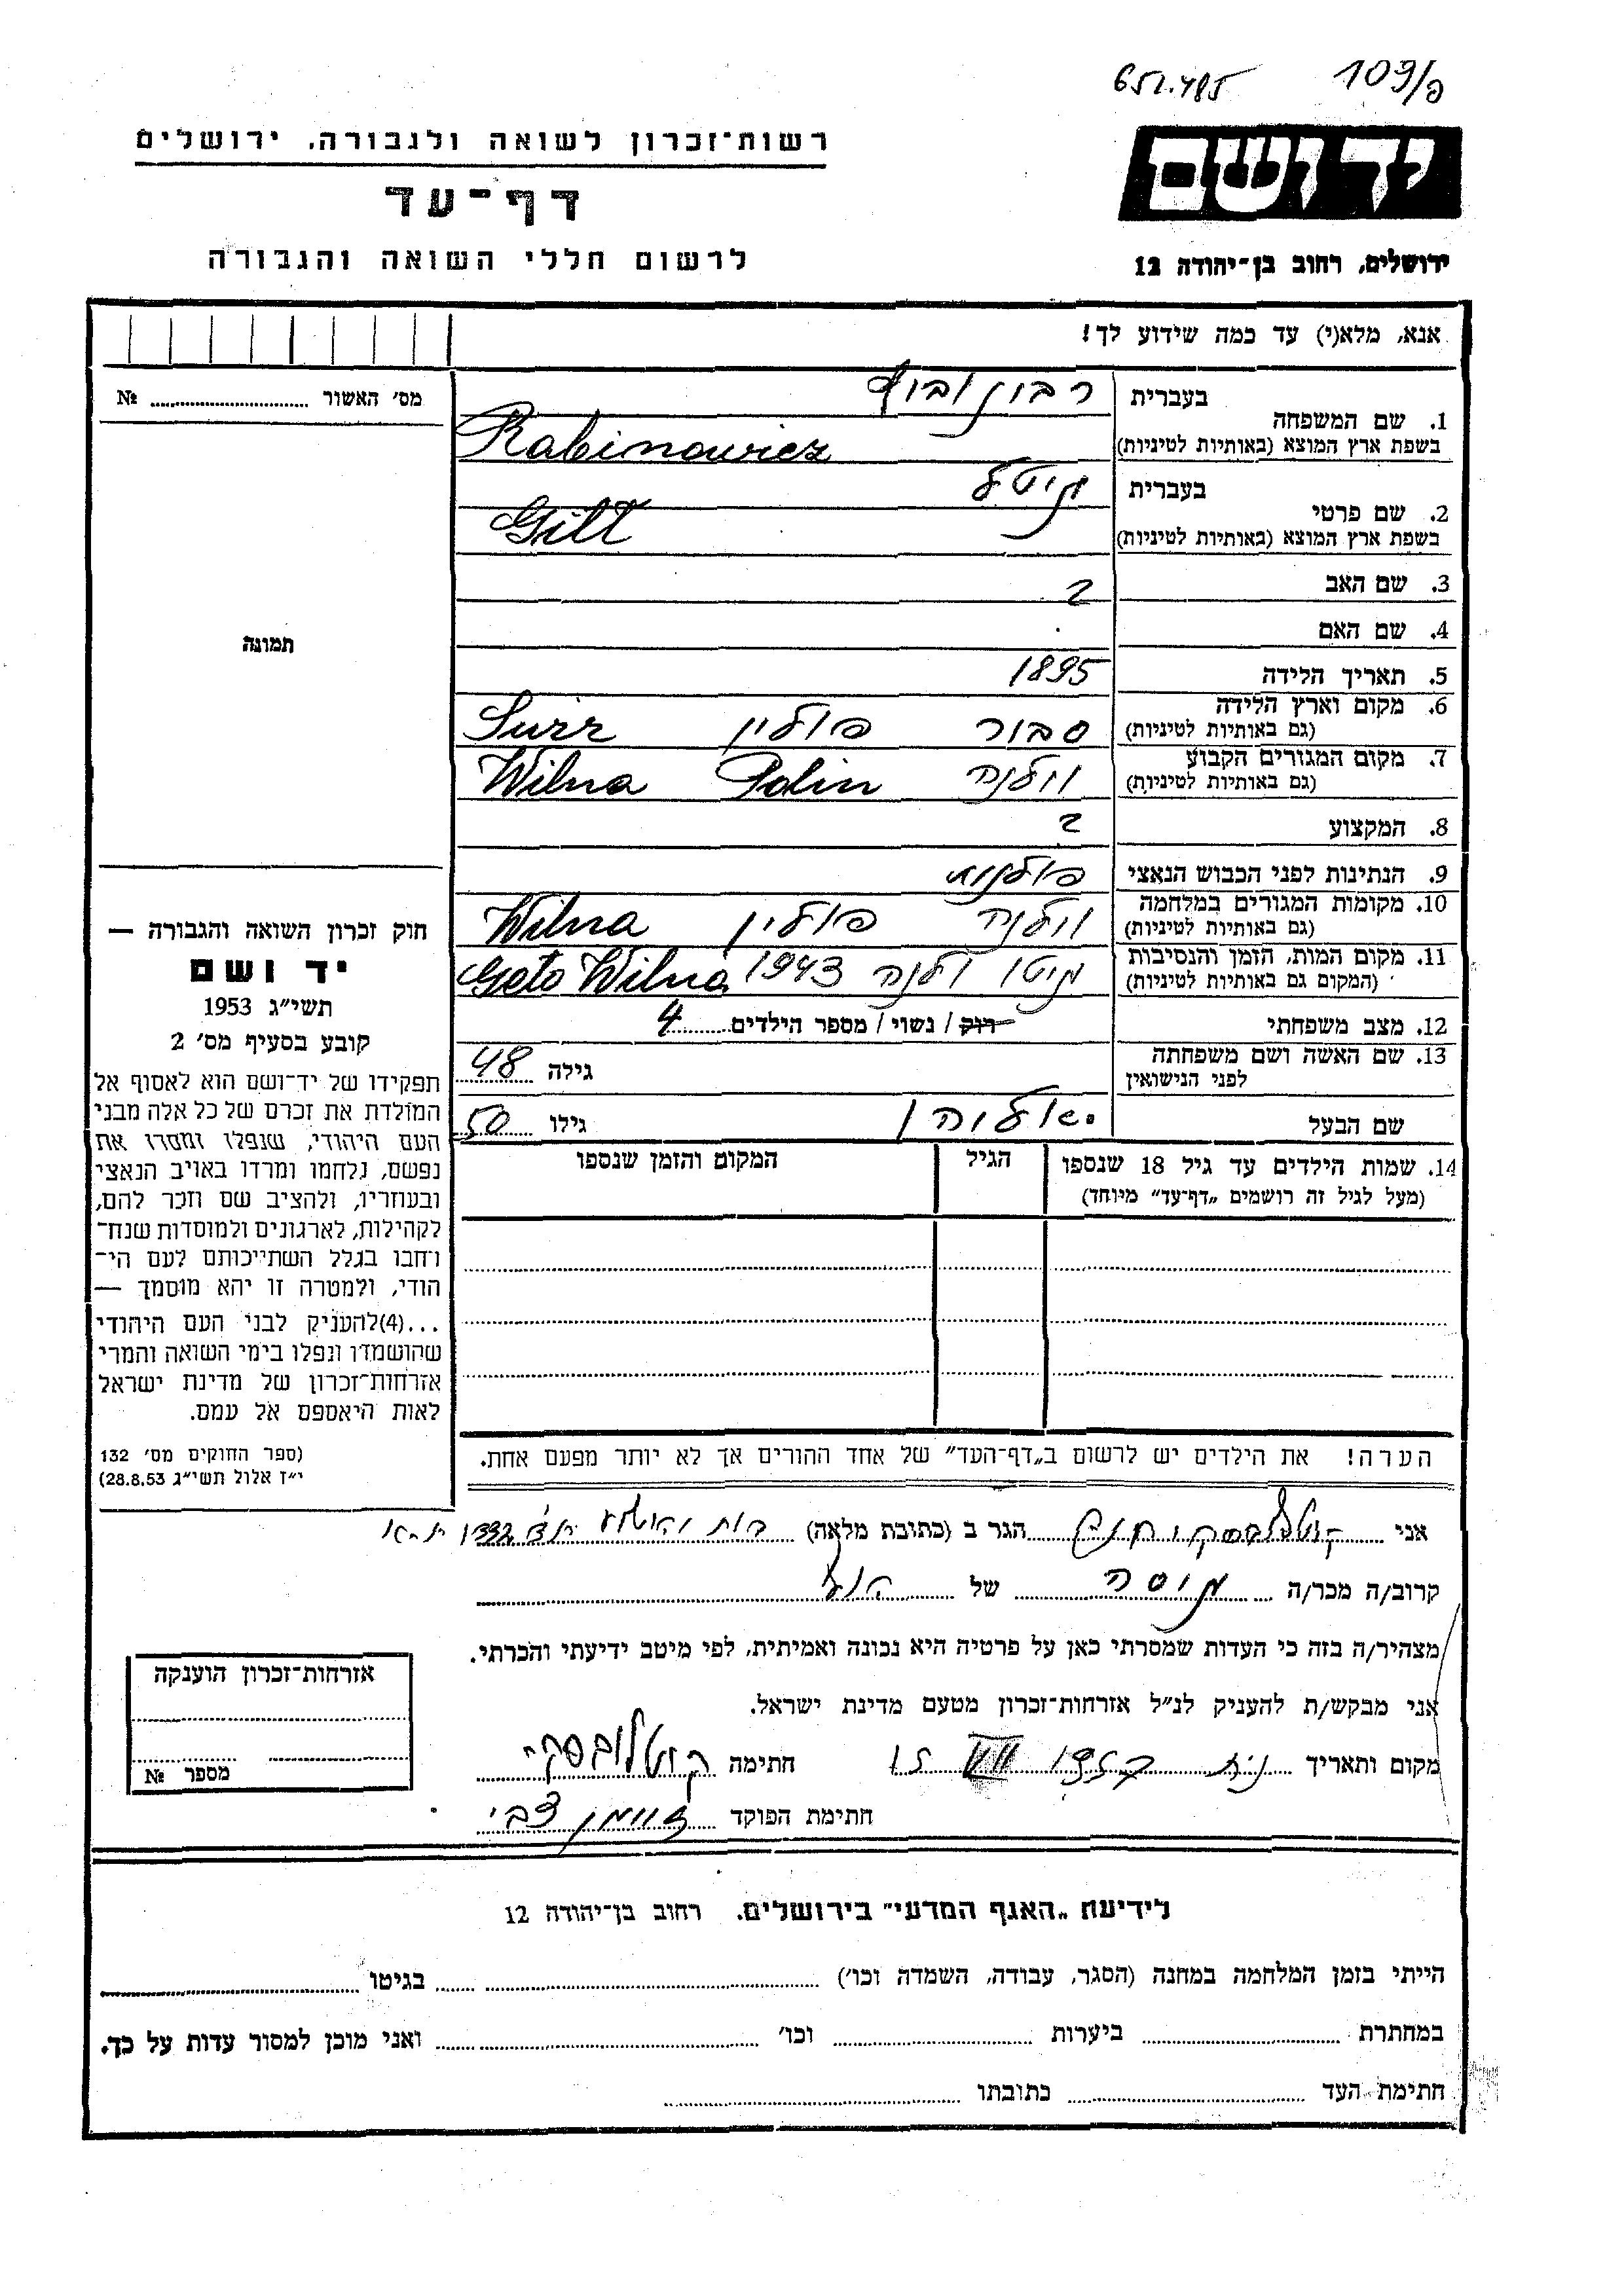 651.485 109/פ
יד ושם
ירושלים, רחוב בן־יהודה 12
רשות־זכרון לשואה ולגבורה, ירושלים
דף־עד
לרשום חללי השואה והגבורה
אנא, מלא(י) עד כמה שידוע לך!
מס׳ האשור № 
1. שם המשפחה
בעברית
בשפת ארץ המוצא (באותיות לטיניות) Rabinowicz
2. שם פרטי
בעברית גיטל
בשפת ארץ המוצא (באותיות לטיניות)
3. שם האב ?
4. שם האם
5. תאריך הלידה 1895
6. מקום וארץ הלידה
(גם באותיות לטיניות) פולין
7. מקום המגורים הקבוע
(גם באותיות לטיניות) וילנה Polin Wilna
8. המקצוע ?
9. הנתינות לפני הכבוש הנאצי פולנית
10. מקומות המגורים במלחמה
(גם באותיות לטיניות) וילנה פולין Wilna
11. מקום המות, הזמן והנסיבות
(המקום גם באותיות לטיניות) גיטו וילנה 1943 Geto Wilna
12. מצב משפחתי רוק / נשוי / מספר הילדים 4
13. שם האשה ושם משפחתה
לפני הנישואין גילה 48
שם הבעל גילו 50
14. שמות הילדים עד גיל 18 שנספו
(מעל לגיל זה רושמים „דף־עד״ מיוחד)
הגיל
המקום והזמן שנספו
הערה! את הילדים יש לרשום ב„דף־העד״ של אחד ההורים אך לא יותר מפעם אחת.
תמונה
חוק זכרון השואה והגבורה —
יד ושם
תשי״ג 1953
קובע בסעיף מס׳ 2
תפקידו של יד־ושם הוא לאסוף אל
המולדת את זכרם של כל אלה מבני
העם היהודי, שנפלו ומסרו את
נפשם, נלחמו ומרדו באויב הנאצי
ובעוזריו, ולהציב שם וזכר להם,
לקהילות, לארגונים ולמוסדות שנח־
רחבו בגלל השתייכותם לעם הי־
הודי, ולמטרה זו יהא מוסמך —
...(4)להעניק לבני העם היהודי
שהושמדו ונפלו בימי השואה והמרי
אזרחות־זכרון של מדינת ישראל
לאות היאספם אל עמם.
(ספר החוקים מס׳ 132
י״ז אלול תשי״ג 28.8.53)
אני הגר ב (כתובת מלאה)
קרוב/ה מכר/ה של
מצהיר/ה בזה כי העדות שמסרתי כאן על פרטיה היא נכונה ואמיתית, לפי מיטב ידיעתי והכרתי.
אני מבקש/ת להעניק לנ״ל אזרחות־זכרון מטעם מדינת ישראל.
מקום ותאריך 15 חתימה
חתימת הפוקד צבי
אזרחות־זכרון הוענקה
מספר №
לידיעת „האגף המדעי״ בירושלים. רחוב בן־יהודה 12
הייתי בזמן המלחמה במחנה (הסגר, עבודה, השמדה וכו׳) בגיטו
במחתרת ביערות וכו׳ ואני מוכן למסור עדות על כך.
חתימת העד כתובתו